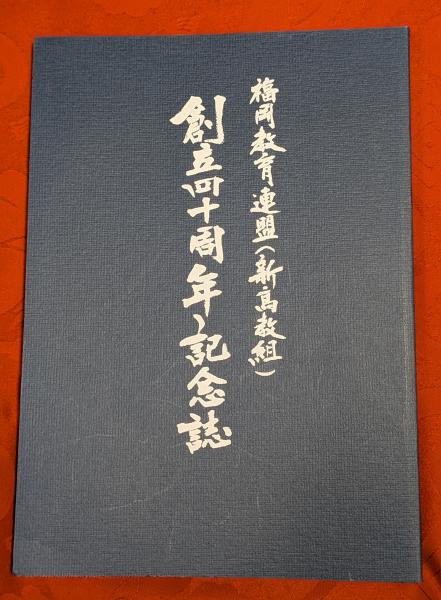 福岡教育連盟(新高教組)
創立四十周年記念誌